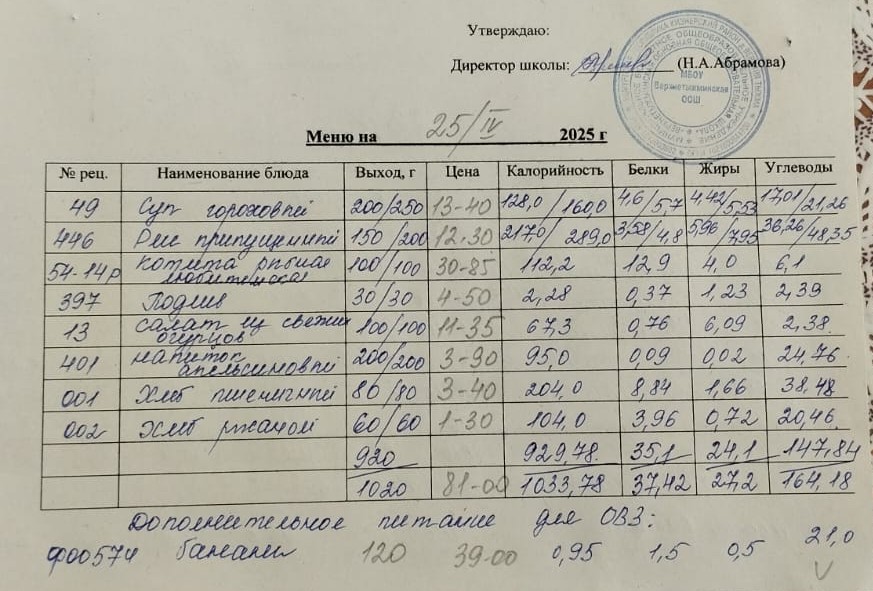 Утверждаю:
Директор школы: (Н.А.Абрамова)
МБОУ
Верхнетыжминская
ООШ
Меню на 25/IV 2025 г
№ рец. Наименование блюда Выход, г Цена Калорийность Белки Жиры Углеводы
49 Суп гороховый 200/250 13-40 128,0/160,0 4,6/5,7 4,42/5,53 17,01/21,26
446 Рис припущенный 150/200 12-30 217,0/289,0 3,58/4,8 5,96/7,95 36,26/48,35
54-14р котлета рыбная 100/100 30-85 112,2 12,9 4,0 6,1
любительская
397 Подлив 30/30 4-50 2,28 0,37 1,23 2,39
13 салат из свежих 100/100 11-35 67,3 0,76 6,09 2,38
огурцов
401 напиток 200/200 3-90 95,0 0,09 0,02 24,76
апельсиновый
001 Хлеб пшеничный 80/80 3-40 204,0 8,84 1,66 38,48
002 Хлеб ржаной 60/60 1-30 104,0 3,96 0,72 20,46
920 929,78 35,1 24,1 147,84
1020 81-00 1033,78 37,42 27,2 164,18
Дополнительное питание для ОВЗ:
ф00574 бананы 120 39-00 0,95 1,5 0,5 21,0